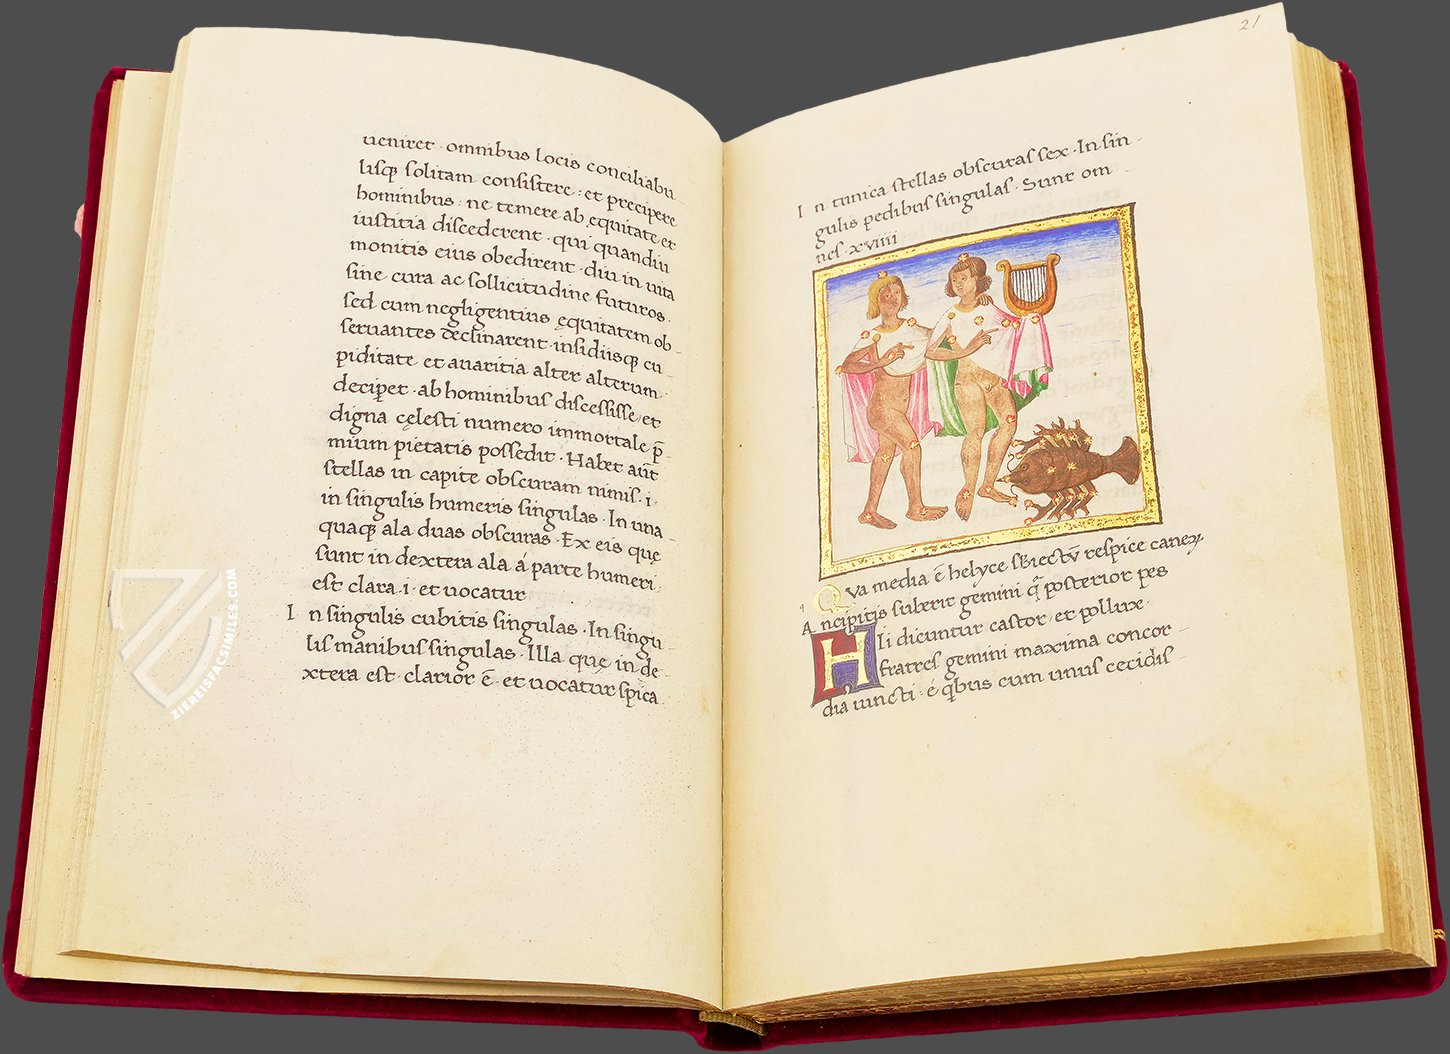 ueniret · omnibus locis conciliabu
lisq; solitam consistere : et precipere
hominibus · ne temere ab ęquitate et
iustitia discederent · qui quandiu
monitis eius obedirent · diu in uita
sine cura ac sollicitudine futuros ·
sed cum negligentius ęquitatem ob
seruantes declinarent · insidiisq; cu
piditate et auaritia alter alterum
deciperet · ab hominibus discessisse et
digna cęlesti numero immortale p̄
mium pietatis possedit · Habet aūt
stellas in capite obscuram nimis · i ·
in singulis humeris singulas · In una
quaq; ala duas obscuras · Ex eis quę
sunt in dextera ala á parte humeri
est clara · i · et uocatur
In singulis cubitis singulas · In singu
lis manibus singulas · Illa quę in de
xtera est · clarior ē · et uocatur spica
21
In tunica stellas obscuras sex · In sin
gulis pedibus singulas · Sunt om
nes · xviiii
Qva media ē helyce sbiectū respice
Ancipitis suberit gemini q̄ posterior pes
Hii dicuntur castor · et pollux ·
fratres gemini maxima concor
dia iuncti · é qbus cum unus cecidis
ZIEREISFACSIMILES.COM